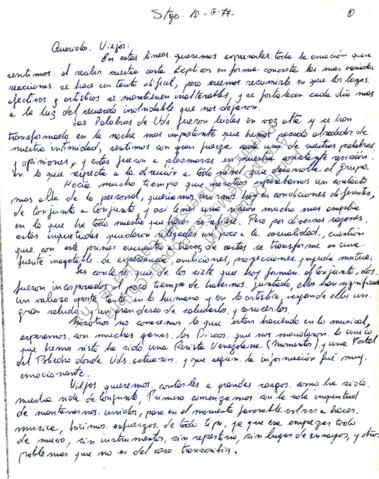 Stgo. 10-8-77. ①
Queridos Viejos:
En estas líneas queremos expresarles toda la emoción que
sentimos al recibir nuestra carta. Explicar en forma concreta las más variadas
reacciones se hace un tanto difícil, pero creemos resumirlo en que los lazos
afectivos y artísticos se mantienen inalterables, y se fortalecen cada día más
a la luz del recuerdo inolvidable que nos dejaron.
Las Palabras de Uds fueron leídas en voz alta y se han
transformado en la noche más impactante que hemos pasado alrededor de
nuestra intimidad, sentimos con gran fuerza cada una de vuestras palabras
y opiniones, y estas fueron a plasmarse en nuestra constante
en lo que respecta a la dirección a todo nivel que el Grupo.
Hacía mucho tiempo que nosotros un contacto
más allá de lo personal, queríamos en condiciones diferentes,
de Conjunto a Conjunto, y así tener una mucho más amplia
en lo que ha todo nuestro que hacer se refiere. Pero por diversas razones
estas inquietudes quedaron relegadas un poco a la casualidad,
que con este primer encuentro a través de cartas se transforme en una
fuente inagotable de experiencias, ambiciones, proyecciones y ayuda mutua.
Les contamos que de los siete que hoy forman el Conjunto, dos
fueron incorporados, y al poco tiempo de habernos juntado, ellos han significado
un valioso aporte en lo humano y en lo artístico, vayan de ellos un
gran saludo y un gran deseo de saludarlos y conocerlos.
Nosotros no conocemos lo que están haciendo en lo musical,
esperamos con muchas ganas los Discos que nos mandaron, lo único
que hemos visto ha sido una Revista Venezolana (Momento), y una Postal
del Poliedro donde Uds. actuaron, y que según la información fue muy
emocionante.
Viejos queremos contarles a grandes rasgos como ha sido
nuestra vida de Conjunto, Primero comenzamos con la sola inquietud
de mantenernos unidos, para en el momento favorable volver a hacer
música, hicimos esfuerzos de todo tipo, ya que era empezar todo
de nuevo, sin instrumentos, sin repertorio, sin lugar de ensayos, y otros
problemas que no es del caso